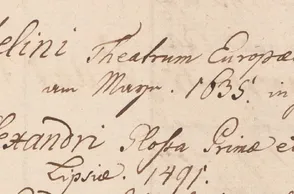 elini Theatrum Europæ
am Mayn. 1635. in
lexandri Glossa Primæ et
Lipsiæ. 1491.